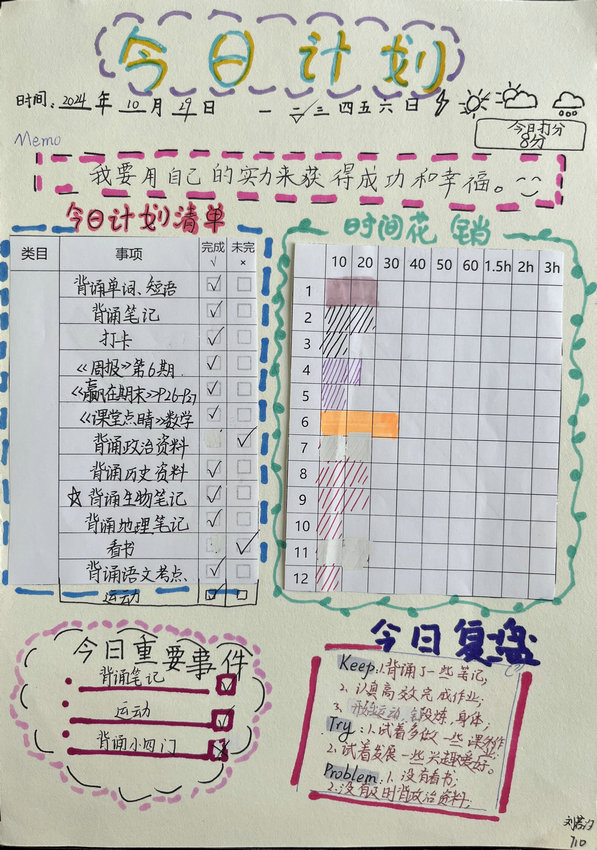 今日计划
时间：2024年10月29日 一 二 三 四 五 六 日
今日打分
8分
Memo
我要用自己的实力来获得成功和幸福。
今日计划清单
类目 事项 完成 √ 未完 ×
背诵单词、短语 ✓
背诵笔记 ✓
打卡 ✓
《周报》第6期 ✓
《赢在期末》P26-P27 ✓
《课堂点睛》数学 ✓
背诵政治资料 ✓
背诵历史资料 ✓
☆背诵生物笔记 ✓
背诵地理笔记 ✓
看书 ✓
背诵语文考点 ✓
运动
时间花销
10 20 30 40 50 60 1.5h 2h 3h
1
2
3
4
5
6
7
8
9
10
11
12
今日重要事件
背诵笔记
运动
背诵小四门
今日复盘
Keep：1.背诵了一些笔记；
2.认真高效完成作业；
3.开始运动，锻炼身体；
Try：1.试着多做一些课外作业；
2.试着发展一些兴趣爱好。
Problem：1.没有看书；
2.没有及时背政治资料；
710